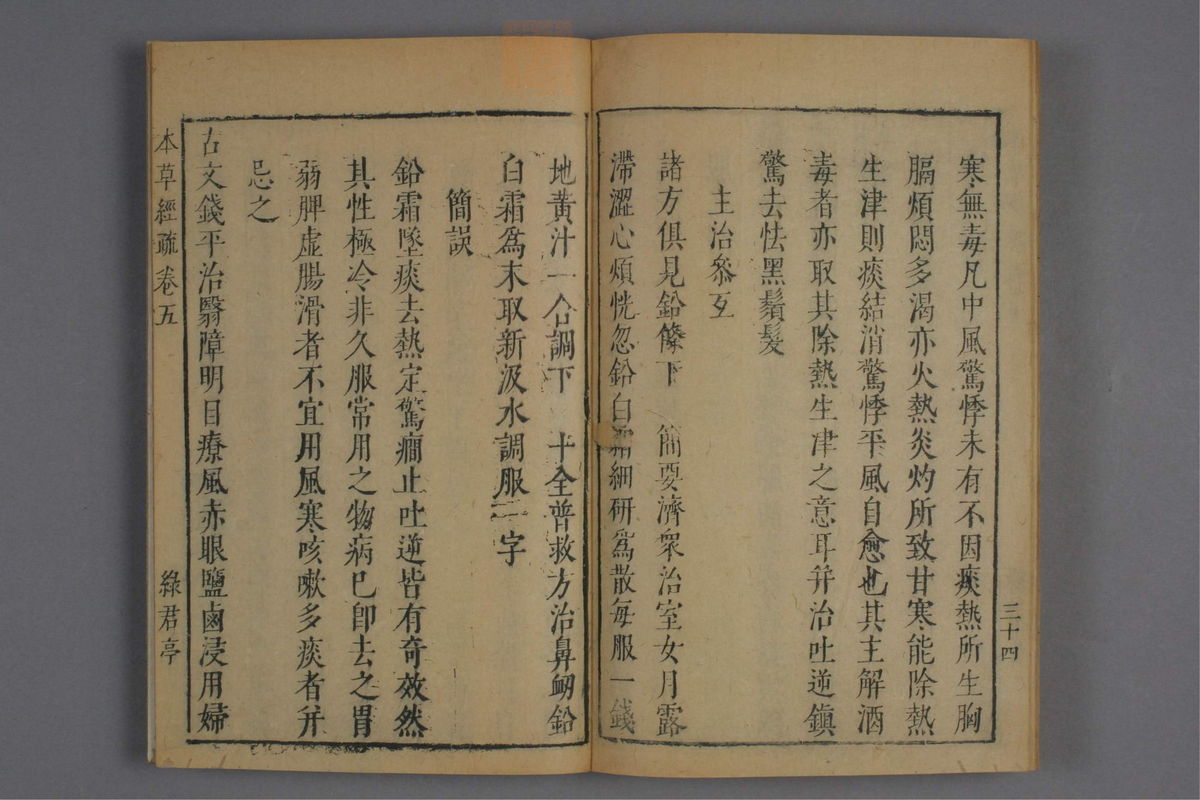 寒無毒凡中風驚悸未有不因痰熱所生胸
膈煩悶多渴亦火熱炎灼所致甘寒能除熱
生津則痰結消驚悸平風自愈也其主解酒
毒者亦取其除熱生津之意耳并治吐逆鎮
驚去怯黑鬚髮
主治參互
諸方俱見鉛條下　簡要濟衆治室女月露
滯澀心煩恍忽鉛白霜細研爲散每服一錢
三十四
地黃汁一合調下　十全普救方治鼻衂鉛
白霜爲末取新汲水調服一字
簡誤
鉛霜墜痰去熱定驚癎止吐逆皆有奇效然
其性極冷非久服常用之物病已卽去之胃
弱脾虛腸滑者不宜用風寒咳嗽多痰者并
忌之
古文錢平治翳障明目療風赤眼鹽鹵浸用婦
本草經疏卷五
綠君亭